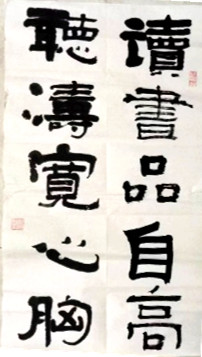 讀書品自高
聽濤寬心胸